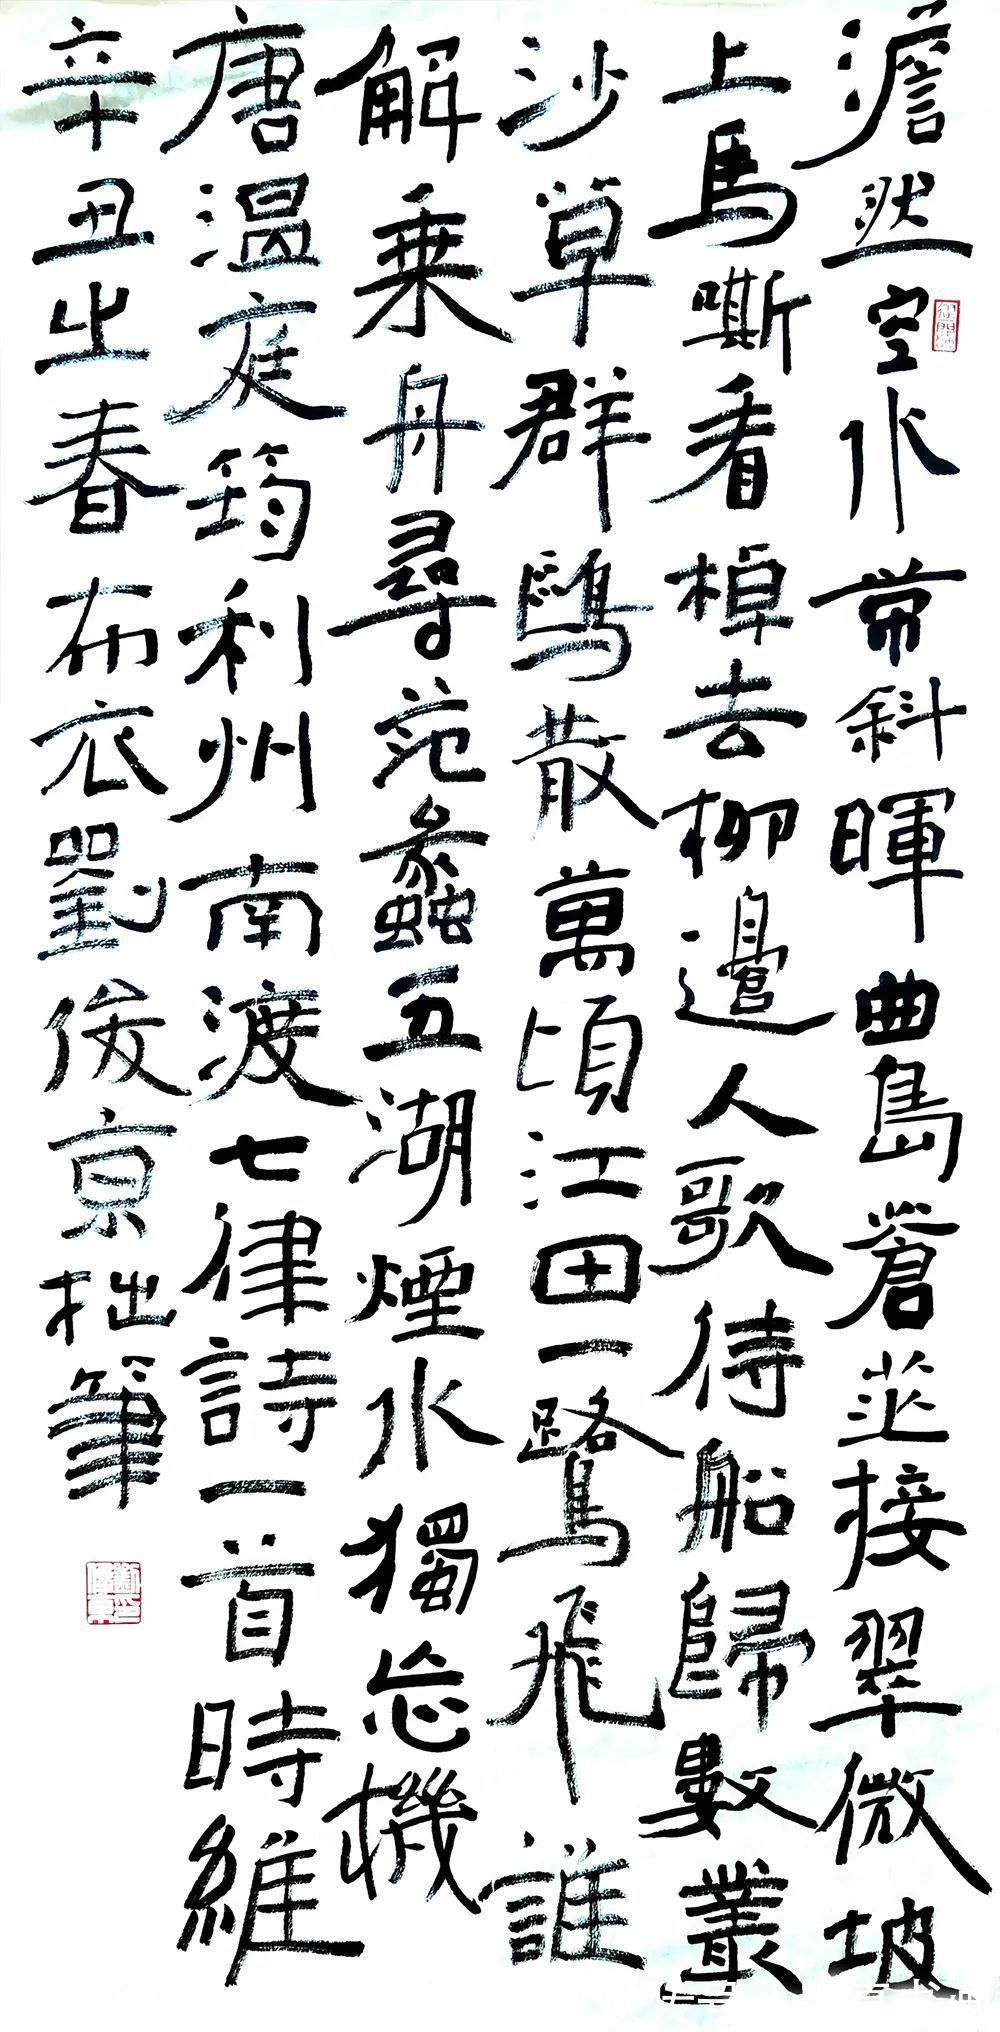 澹然空水帶斜暉曲島蒼茫接翠微坡
上馬嘶看棹去柳邊人歌待船歸數叢
沙草群鷗散萬頃江田一鷺飛誰
解乘舟尋范蠡五湖煙水獨忘機
唐温庭筠利州南渡七律詩一首時維
辛丑之春布衣劉俊京拙筆